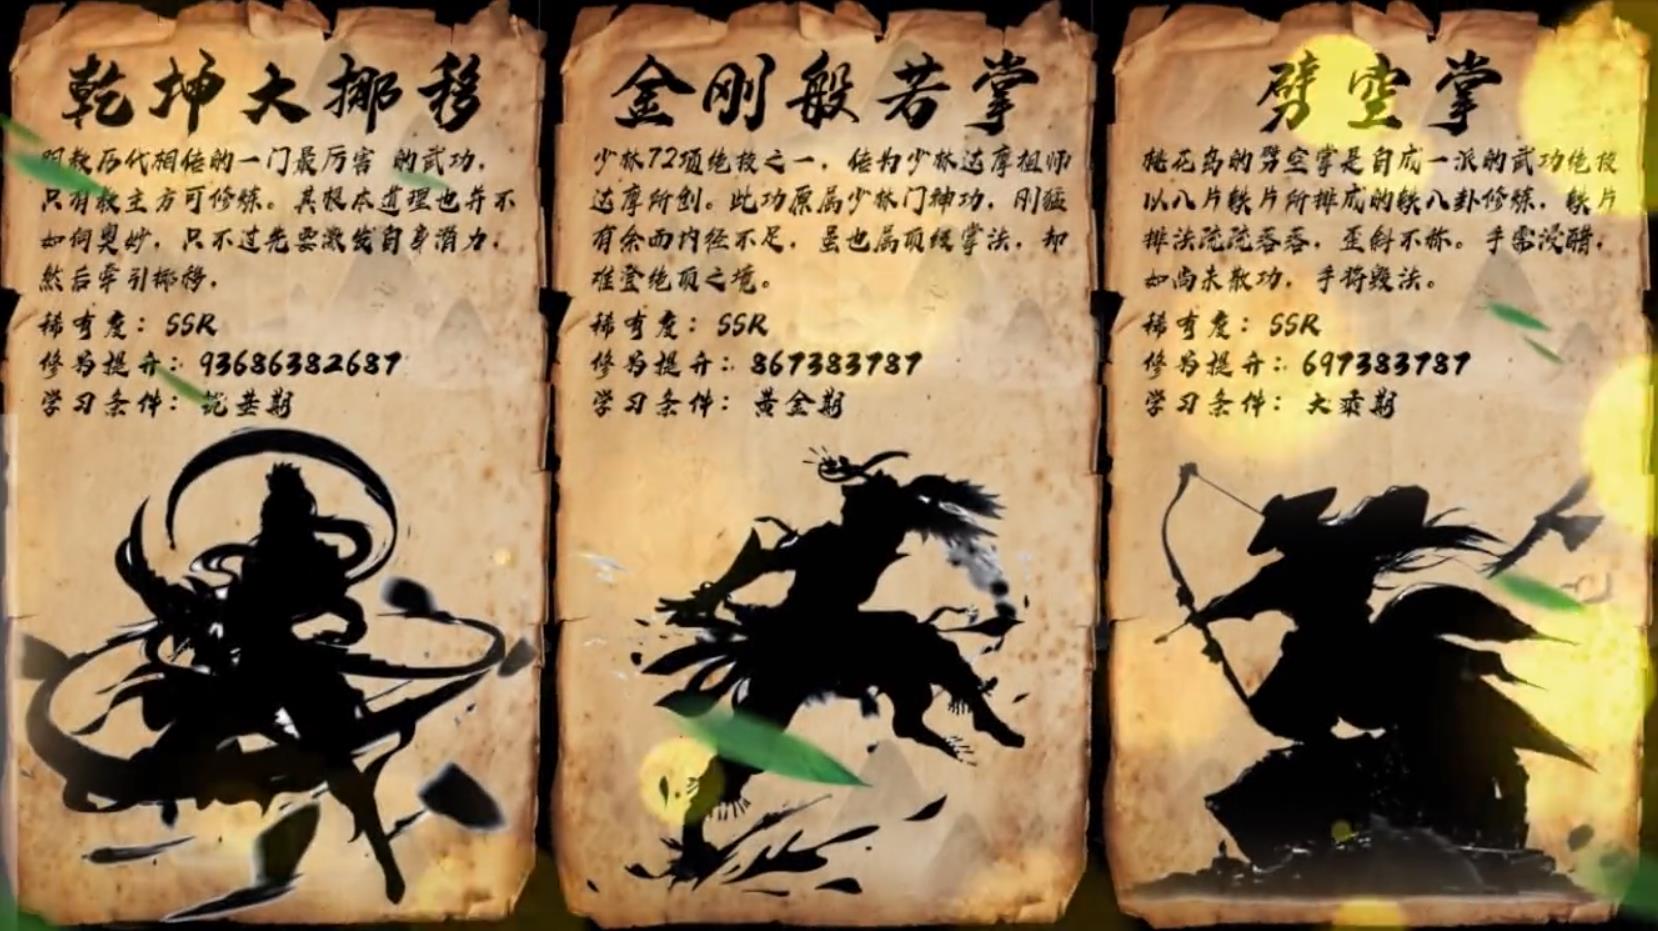 乾坤大挪移
明教历代相传的一门最厉害 的武功，
只有教主方可修炼。其根本道理也并不
如何奥妙，只不过先要激发自身潜力，
然后牵引挪移，
稀有度：SSR
修为提升：93686382687
学习条件：筑基期
金刚般若掌
少林72项绝技之一，传为少林达摩祖师
达摩所创。此功原属少林门神功，刚猛
有余而内径不足，虽也属顶级掌法，却
难登绝顶之境。
稀有度：SSR
修为提升：867383787
学习条件：黄金期
劈空掌
桃花岛的劈空掌是自成一派的武功绝技
以八片铁片所排成的铁八卦修炼，铁片
排法疏疏落落，歪斜不称。手需浸醋，
如尚未散功，手将毁法。
稀有度：SSR
修为提升：697383787
学习条件：大乘期